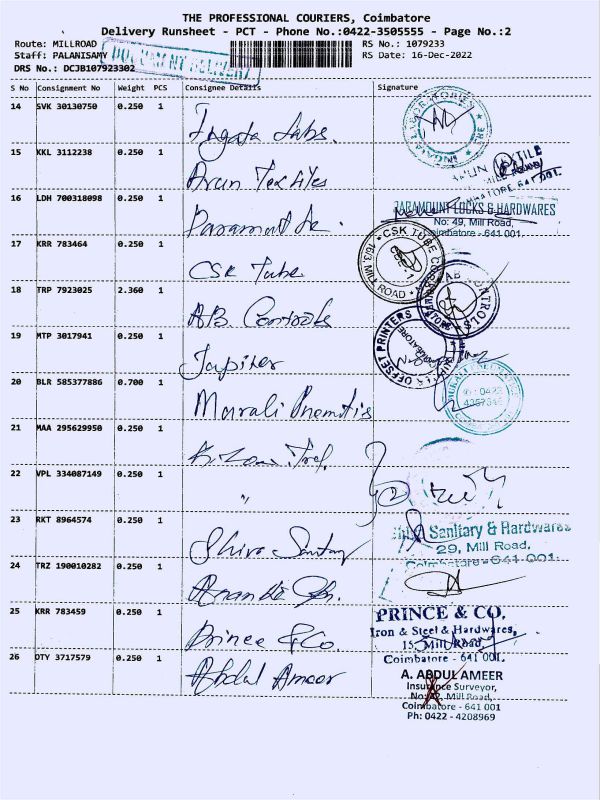 THE PROFESSIONAL COURIERS, Coimbatore
Delivery Runsheet - PCT - Phone No.:0422-3505555 - Page No.:2
Route: MILLROAD
RS No.: 1079233
Staff: PALANISAMY
RS Date: 16-Dec-2022
DRS No.: DCJB107923302
DOCUMENT DELIVERY
S No Consignment No Weight PCS Consignee Details Signature
14 SVK 30130750 0.250 1 Ingata Labs.
15 KKL 3112238 0.250 1 Arun Textiles
MILL ROAD
COIMBATORE 641 001.
16 LDH 700318098 0.250 1 Paramount
PARAMOUNT LOCKS & HARDWARES
No: 49, Mill Road,
Coimbatore - 641 001.
17 KRR 783464 0.250 1 CSK Tube
CSK TUBE
16/3, MILL ROAD
18 TRP 7923025 2.360 1 AB Controls
AB CONTROLS
19 MTP 3017941 0.250 1 Jupiter
OFFSET PRINTERS
COIMBATORE
20 BLR 585377886 0.700 1 Murali Pnematis
21 MAA 295629950 0.250 1
22 VPL 334087149 0.250 1 "
23 RKT 8964574 0.250 1 Shiva Sanitary
Sanitary & Hardwares
29, Mill Road,
Coimbatore - 641 001.
24 TRZ 190010282 0.250 1
25 KRR 783459 0.250 1 Prince & Co.
PRINCE & CO.
Iron & Steel & Hardwares,
15, Mill Road,
Coimbatore - 641 001.
26 DTY 3717579 0.250 1 Abdul Ameer
A. ABDUL AMEER
Insurance Surveyor,
No: 42, Mill Road,
Coimbatore - 641 001
Ph: 0422 - 4208969